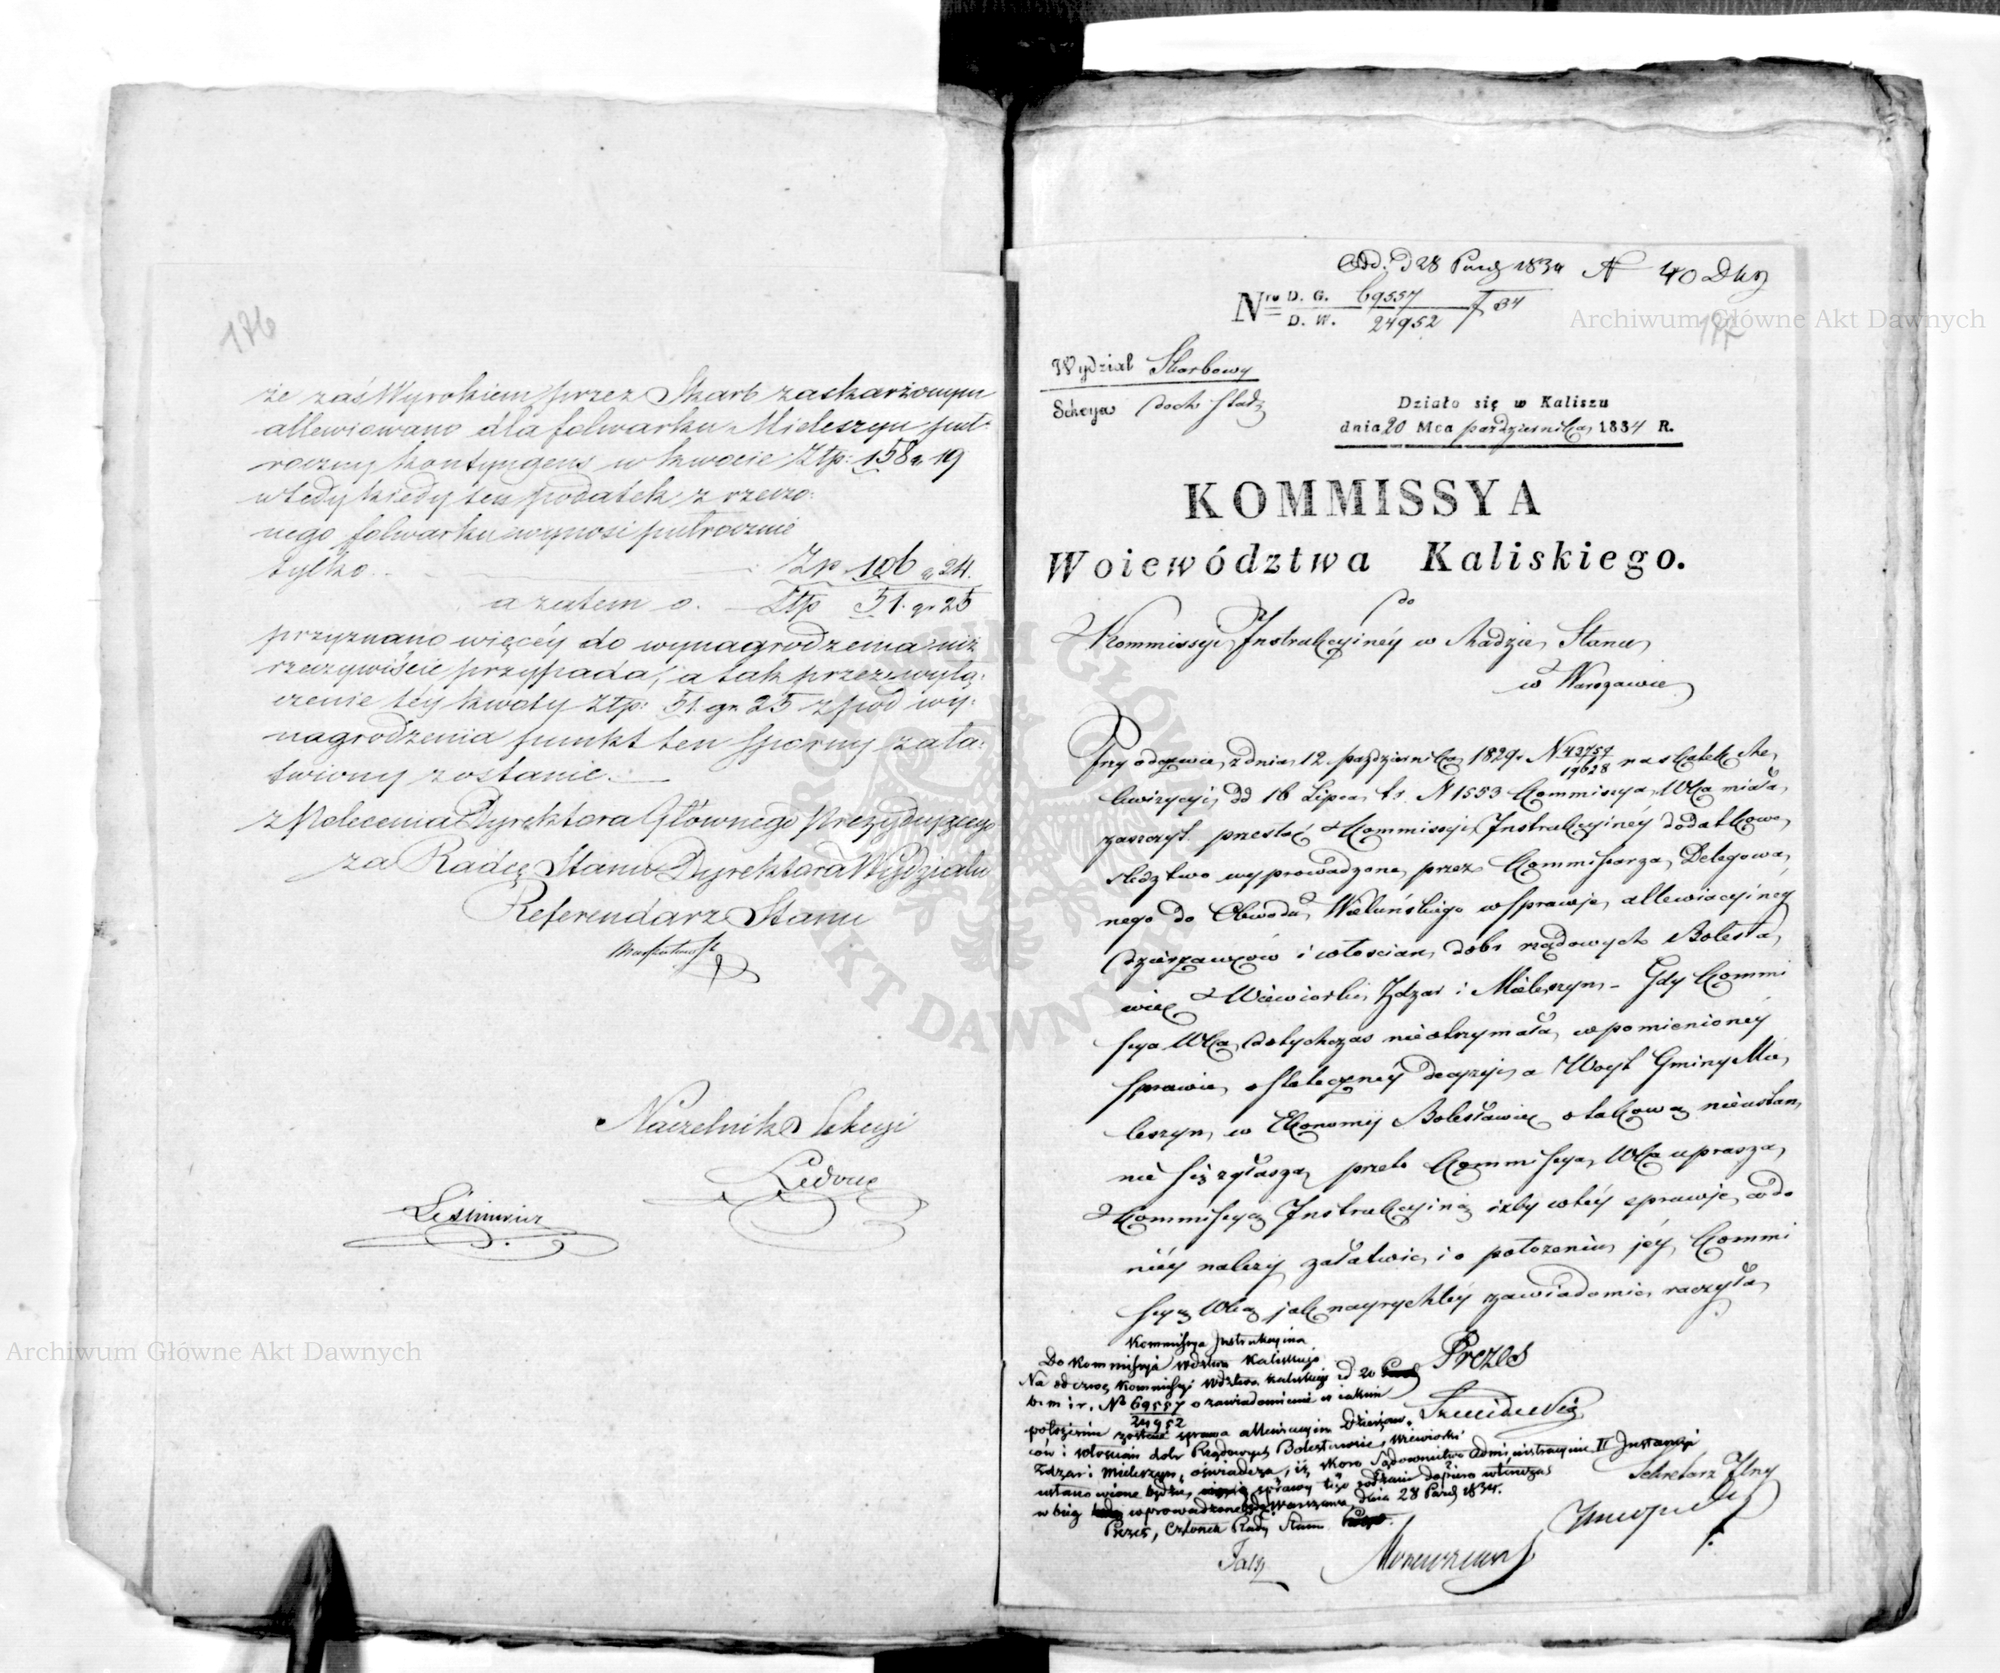 176
że zaś Wyrokiem przez Skarb zaskarżonym
allewiowano dla folwarku Mieleszyn puł-
roczny kontyngens w kwocie Złp: 158 g. 19
wtedy kiedy ten podatek z rzeczo-
nego folwarku wynosi pułrocznie
tylko Zp 106 g 24.
a zatem o. Złp 51. gr 25
przyznano więcéy do wynagrodzenia niż
rzeczywiście przypada, a tak przez wyłą-
czenie téy kwoty Złp: 51. gr. 25 z pod wy-
nagrodzenia punkt ten sporny zała-
twiony zostanie.
z Polecenia Dyrektora Głównego Prezydującego
za Radcę Stanu Dyrektora Wydziału
Referendarz Stanu
Naczelnik Sekcyi
Archiwum Główne Akt Dawnych
Odd. d 28 Paźdź 1834 N 40
Nro D. G. 69557
D. W. 24952 / 34
Archiwum Główne Akt Dawnych
177
Wydział Skarbowy
Sekcya
Działo się w Kaliszu
dnia 20 Mca października 1834 R.
KOMMISSYA
Woiewództwa Kaliskiego.
do
Kommissyi Instrukcyinéy w Radzie Stanu
w Warszawie
Przy odezwie z dnia 12 października 1829 r N 43757/19628 na skutek Re-
kwizycyi, dd 16 Lipca t.r. N 1553 Kommissya Wka miała
zaszczyt przesłać Kommissyi Instrukcyinéy dodatkowe
śledztwo wyprowadzone przez Kommissarza Delegowa-
nego do Obwodu Wieluńskiego w sprawie allewiacyinéy
dzierżawców i włościan dóbr rządowych Bolesła-
wiec Wiewiorki, Zdzar i Mieleszyn - Gdy Kommi
ssya Wka dotychczas nie otrzymała w pomienionéy
sprawie ostatecznéy decyzyi, a Woyt Gminy Mie-
leszyn w Ekonomij Bolesławiec o takową nieustan-
nie się zgłasza, przeto Kommissya Wka uprasza
Kommissyą Instrukcyiną iżby w téy sprawie, co do
niéy należy załatwić, i o położeniu jéy Kommi
ssyą Wką jak nayrychléy zawiadomić raczyła
Prezes
Kommissya Instrukcyina
Do Kommissyi Wdztwa Kaliskiego
Na odezwę Kommissyi Wdztwa Kaliskiego d 20
b. m i r. No 69557/24952 o zawiadomienie w iakim
położeniu zostaie sprawa allewiacyina Dzierżaw-
ców i Włościan dobr Rządowych Bolesławiec, Wiewiorki
Zdzar i Mieleszyn, oświadcza, iż skoro Sądownictwo Administracyine II Instancyi
ustanowione będzie, sprawy tego rodzaiu dopiero wtenczas
w bieg wprowadzone będą Warszawa dnia 28 Paźdź 1834.
Prezes, Członek Rady Stanu
Sekretarz Jlny
Archiwum Główne Akt Dawnych
ARCHIWUM GŁÓWNE AKT DAWNYCH